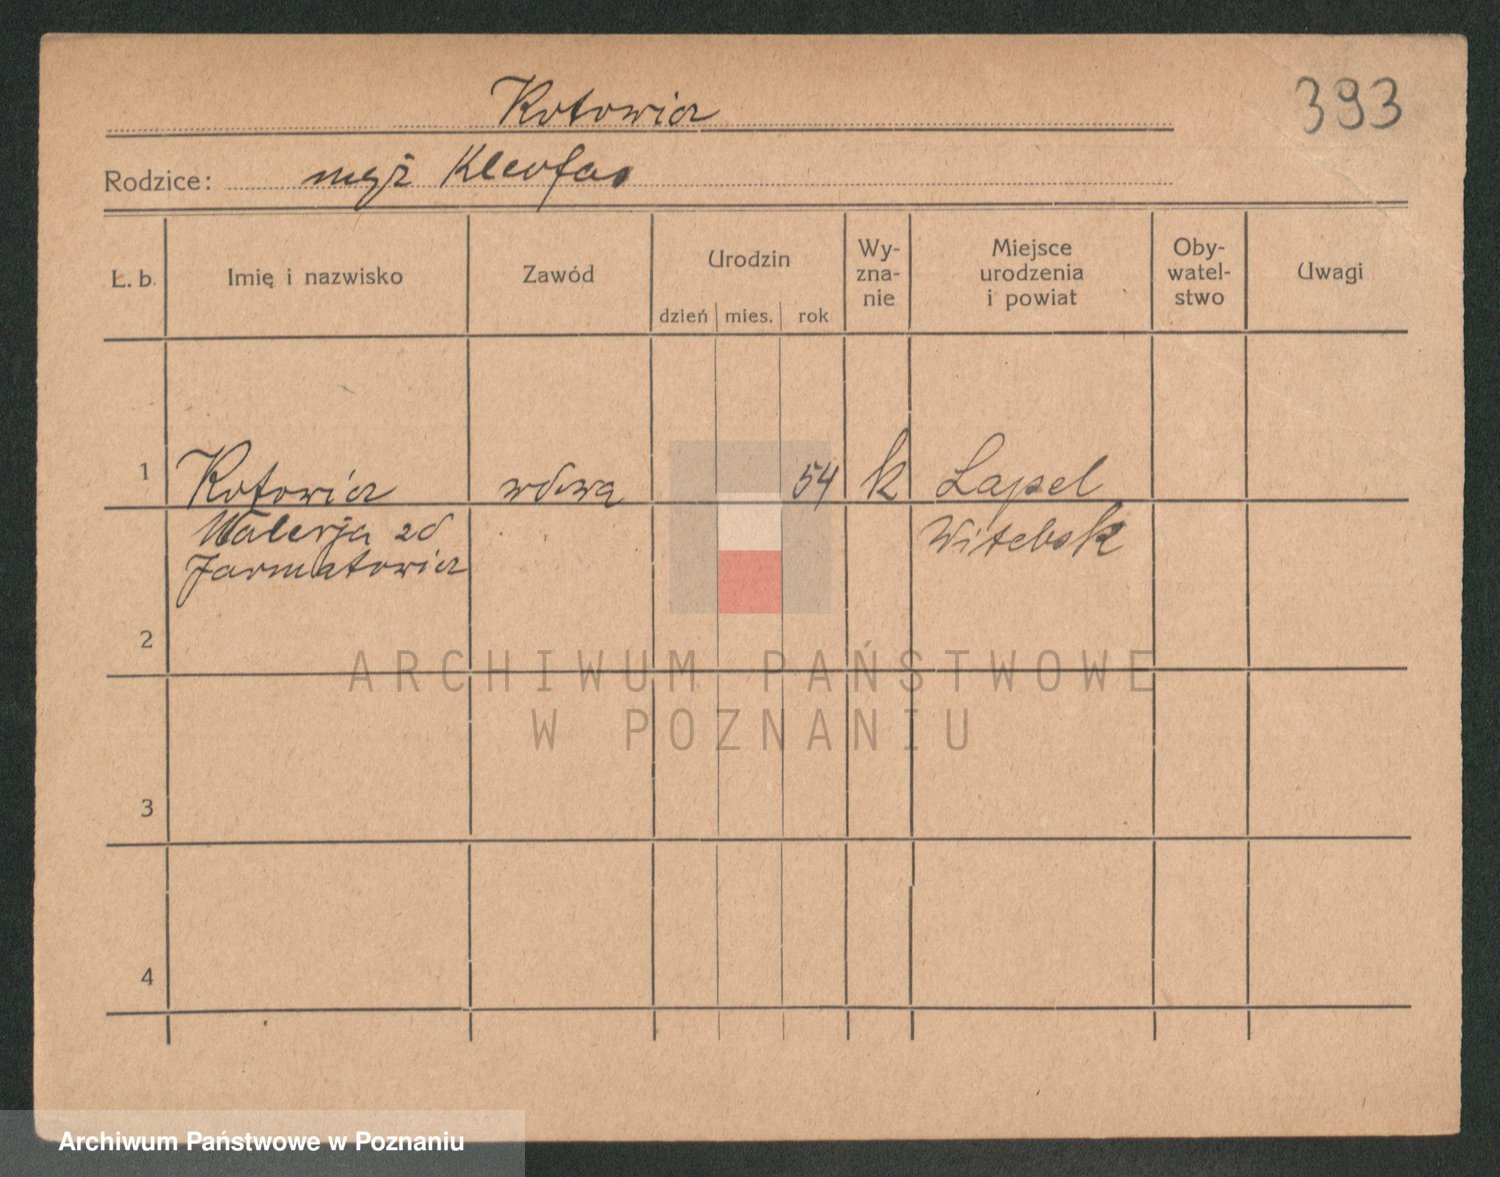 Kotowicz
393
Rodzice: mąż Kleofas
Ł. b.
Imię i nazwisko
Zawód
Urodzin
dzień
mies.
rok
Wy-
zna-
nie
Miejsce
urodzenia
i powiat
Oby-
watel-
stwo
Uwagi
1
Kotowicz
wdowa
54
k
Lapel
Walerja zd
Witebsk
Jarmatowicz
2
ARCHIWUM PAŃSTWOWE
W POZNANIU
3
4
Archiwum Państwowe w Poznaniu